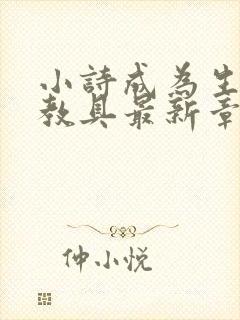 小詩成為生
教具最新章
仲小悦